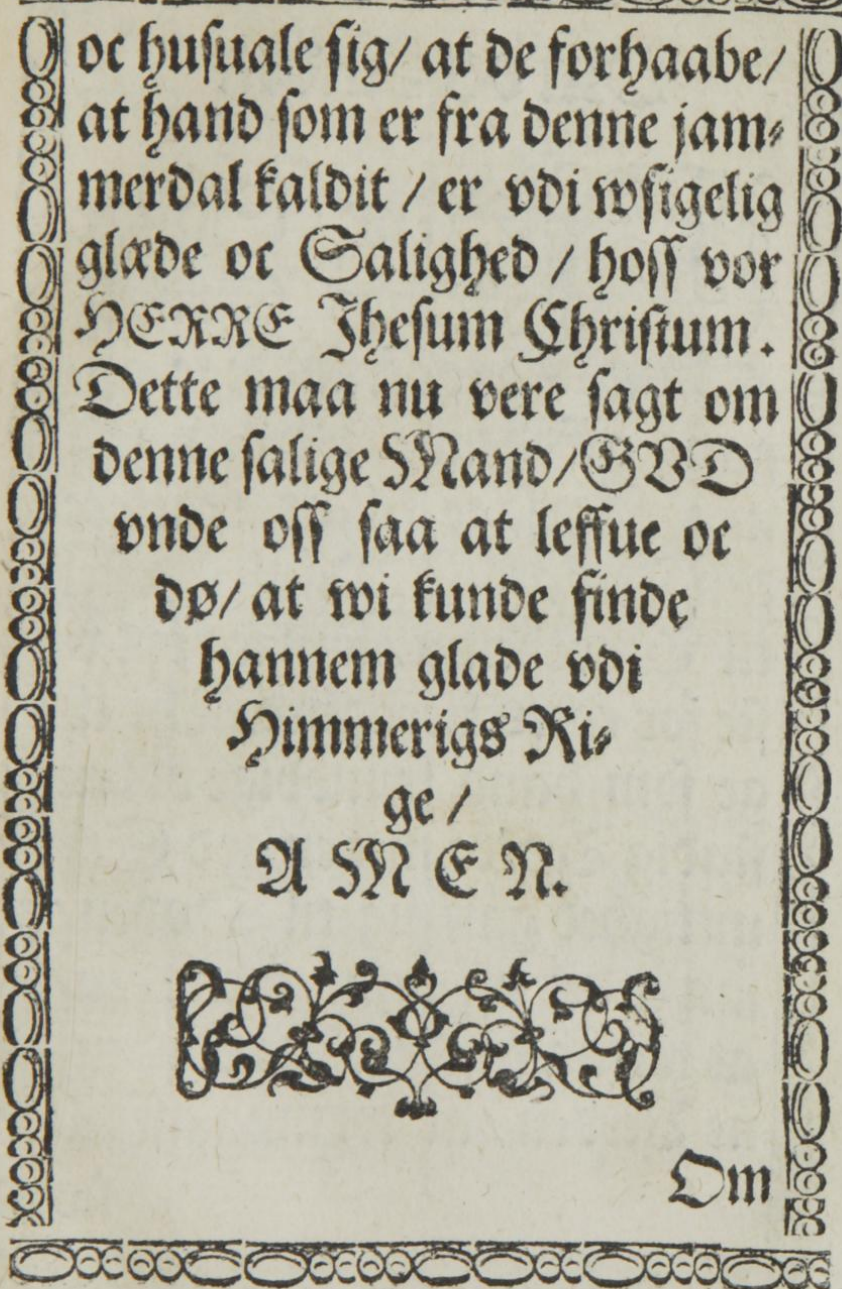 oc husuale sig/ at de forhaabe/
at hand som er fra denne jam⸗
merdal kaldit / er vdi wsigelig
glæde oc Salighed / hoss vor
HERRE Jhesum Christum.
Dette maa nu vere sagt om
denne salige Mand/GVD
vnde oss saa at leffue oc
dø/ at wi kunde finde
hannem glade vdi
Himmerigs Ri⸗
ge /
A M E N.
Om